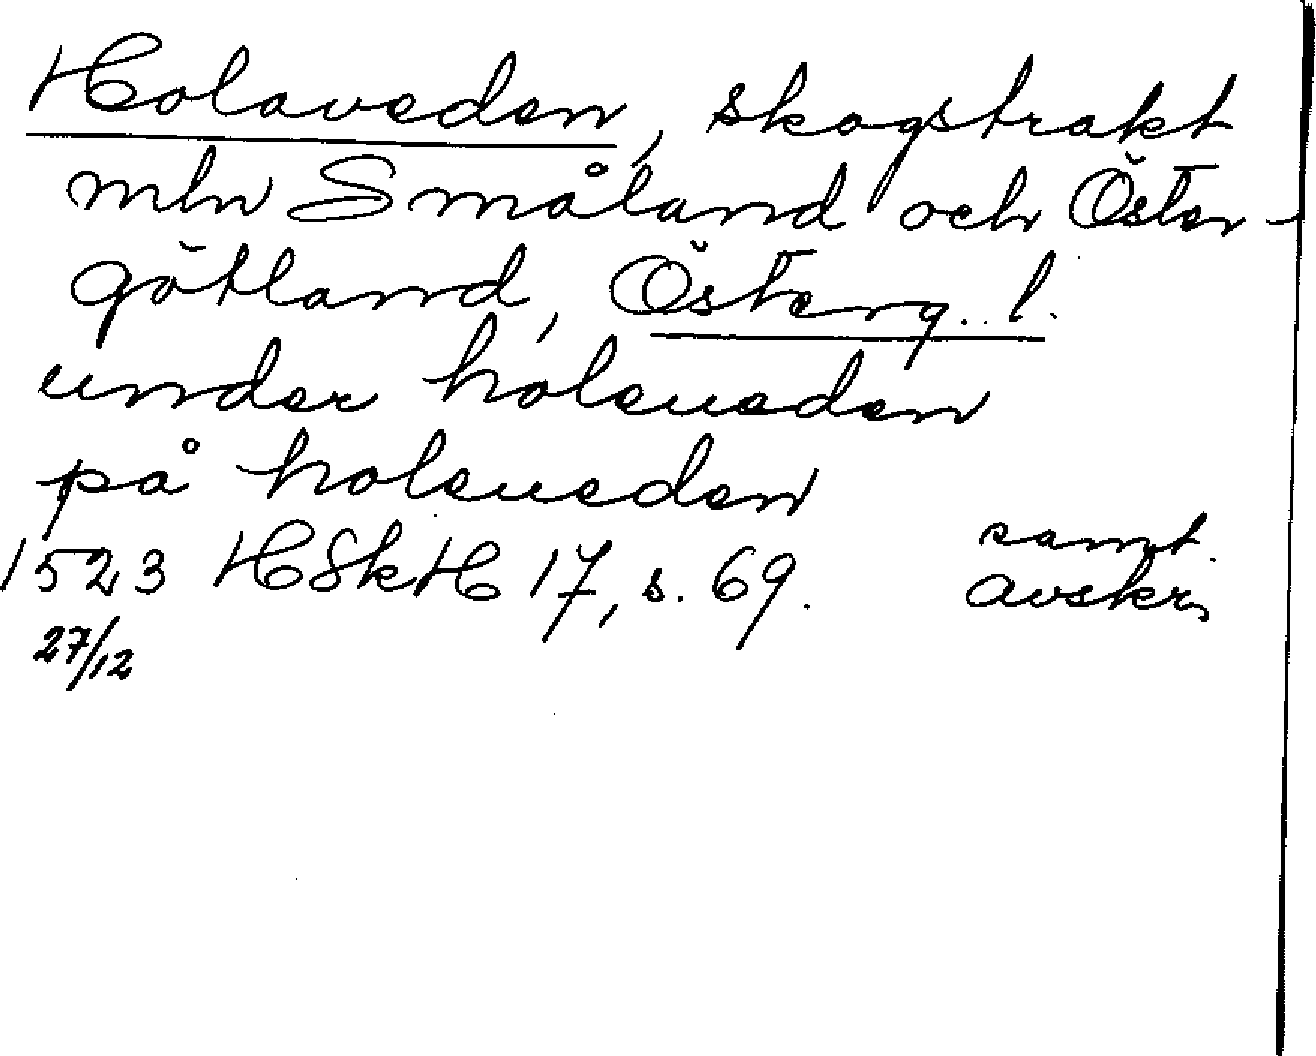 Holaveden, skogstrakt
mln Småland och Öster-
götland, Österg. l.
under holeueden
på holeueden
1523 HSkH 17, s. 69. samt.
avskr.
27/12